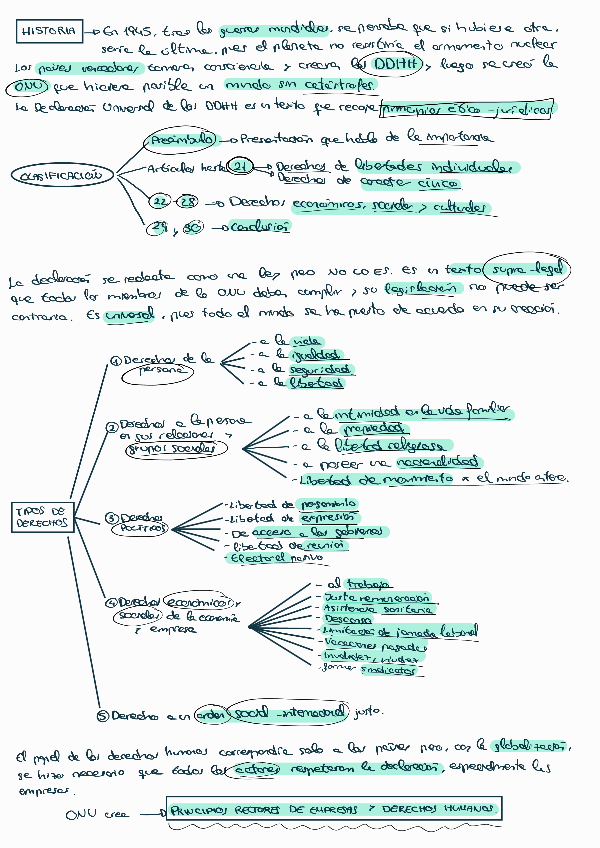 HISTORIA → En 1945, tras las guerras mundiales, se pensaba que si hubiese otra,
sería la última, pues el planeta no resistiría el armamento nuclear
Los países vencedores toman consciencia y crearon los DDHH, luego se creó la
ONU que hiciera posible un mundo sin catástrofes
La Declaración Universal de los DDHH es un texto que recoge principios ético-jurídicos
CLASIFICACIÓN
Preámbulo → Presentación que habla de la importancia
Artículos hasta 21 → Derechos de libertades individuales
Derechos de carácter cívico
22 - 28 → Derechos económicos, sociales y culturales
29 y 30 → conclusión
La declaración se redacta como una ley, pero NO LO ES. Es un texto supra-legal
que todos los miembros de la ONU deben cumplir y su legislación no puede ser
contraria. Es universal, pues todo el mundo se ha puesto de acuerdo en su creación.
TIPOS DE
DERECHOS
① Derechos de la
persona
- a la vida
- a la igualdad
- a la seguridad
- a la libertad
② Derechos a la persona
en sus relaciones y
grupos sociales
- a la intimidad en la vida familiar
- a la propiedad
- a la libertad religiosa
- a poseer una nacionalidad
- Libertad de movimiento x el mundo entero.
③ Derechos
POLÍTICOS
- Libertad de pensamiento
- Libertad de expresión
- De acceso a los gobiernos
- libertad de reunión
- Electoral pasivo
④ Derechos económicos y
sociales de la economía
y empresa
- al trabajo
- Justa remuneración
- Asistencia sanitaria
- Descanso
- Limitación de jornada laboral
- Vacaciones pagadas
- Invalidez, viudez
- formar sindicatos
⑤ Derecho a un orden social-internacional justo.
El papel de los derechos humanos correspondía solo a los países pero, con la globalización,
se hizo necesario que todos los actores respetaran la declaración, especialmente las
empresas.
ONU crea → PRINCIPIOS RECTORES DE EMPRESAS Y DERECHOS HUMANOS